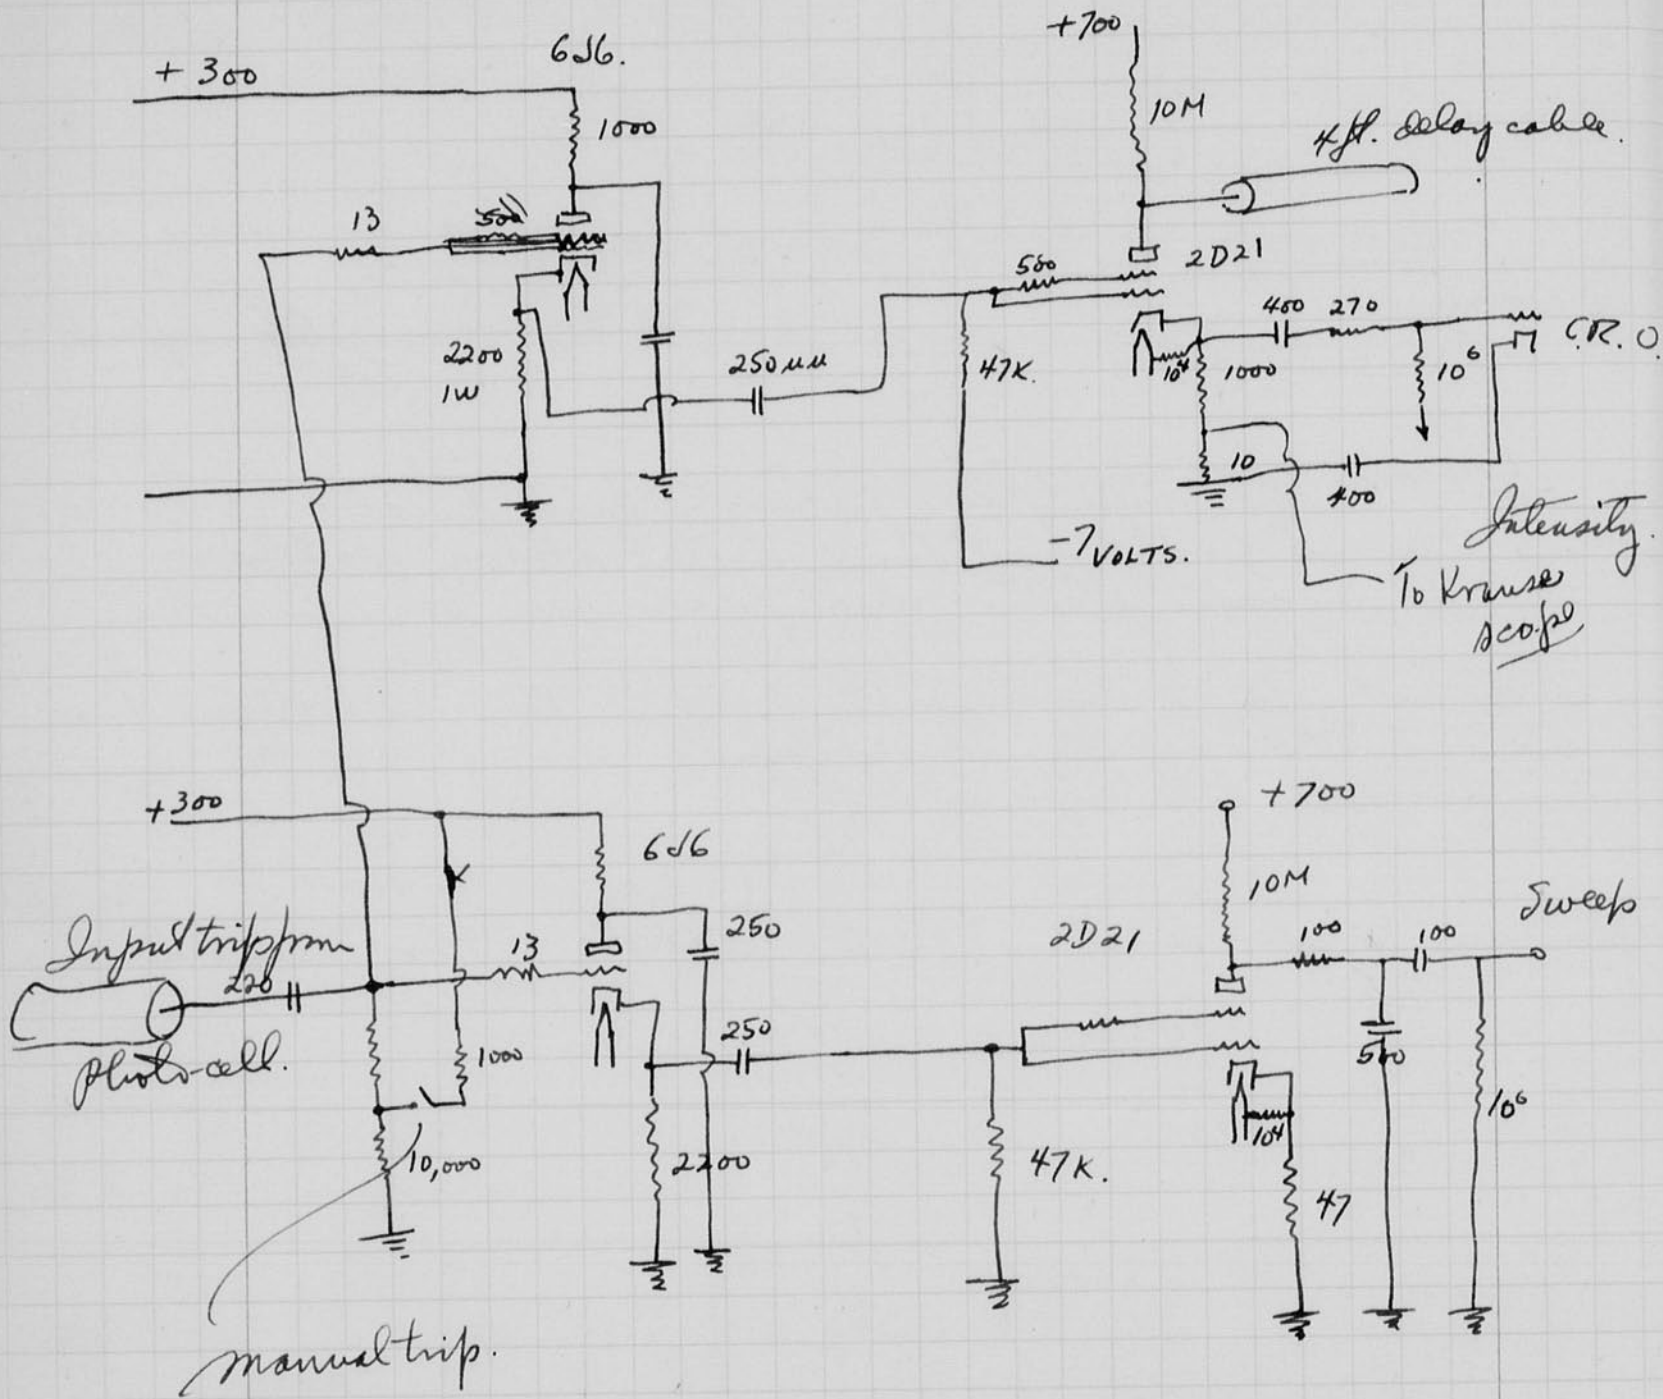 + 300
6J6.
1000
13
500
2200
1W
250 µµ
+700
10M
4 ft. delay cable.
500
2D21
47K.
400
270
C.R.O.
10⁴
1000
10⁶
10
400
-7 VOLTS.
Intensity.
To Krause
scope
+300
6J6
Input trip from
220
photo-cell.
13
1000
10,000
250
250
2200
manual trip.
+700
10M
2D21
100
100
Sweep
500
10⁶
47K.
10⁴
47